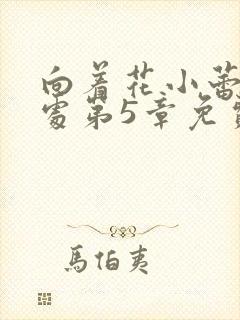 向着花小蕾
处第5章免费
馬伯夷